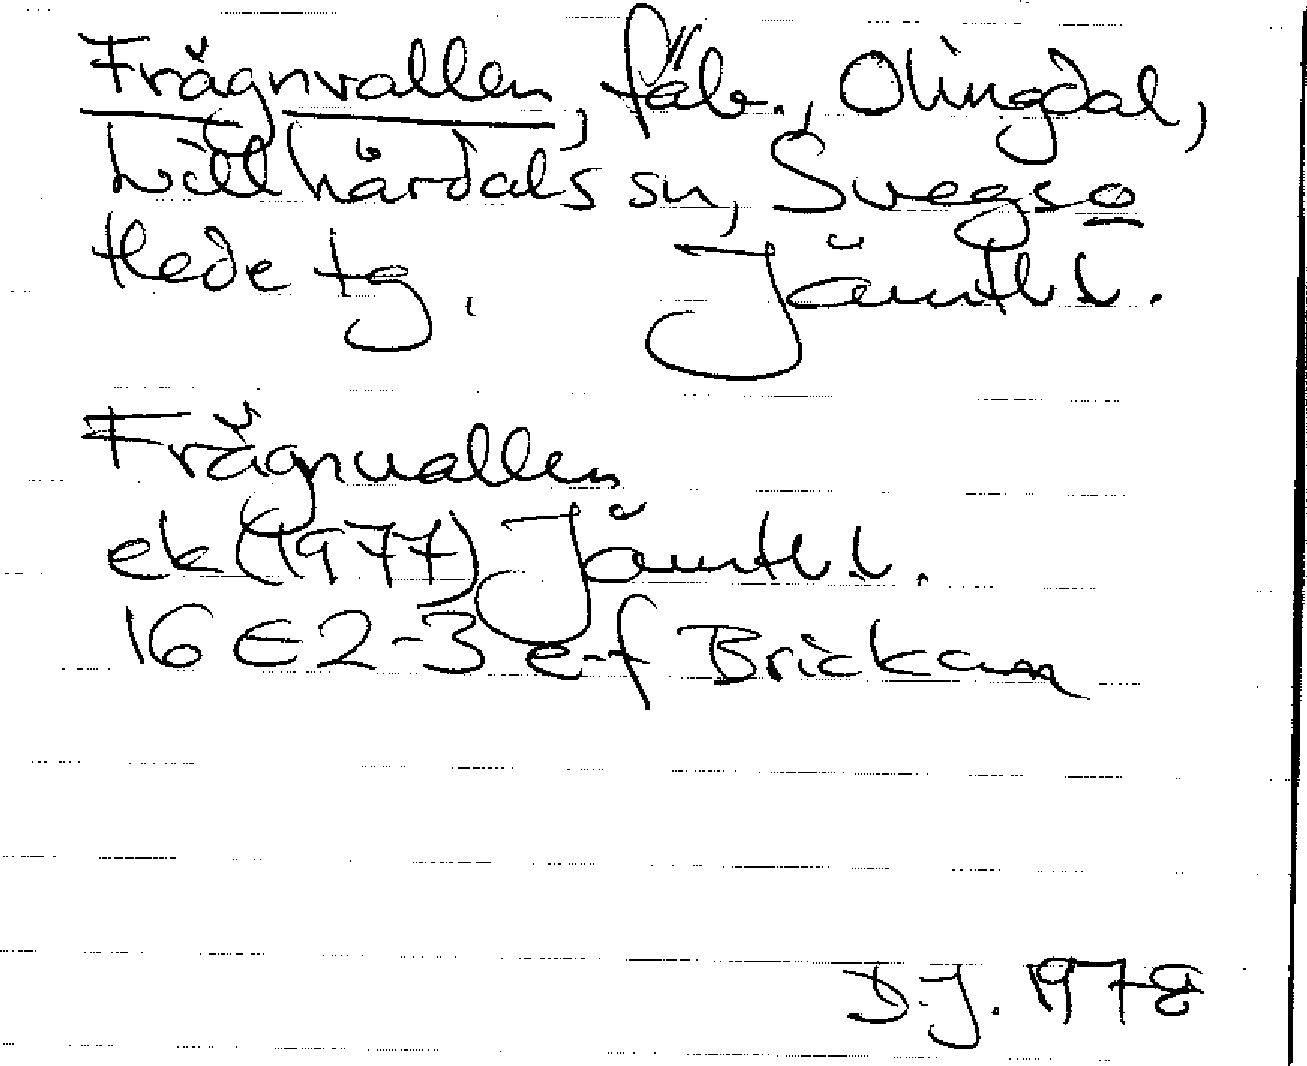 Frägnvallen, fäb., Olingdal,
Lillhärdals sn, Svegs o
Hede tg. Jämtl l.
Frägnvallen
ek (1977) Jämtl l.
16 E 2-3 e-f Brickan
D.J. 1978